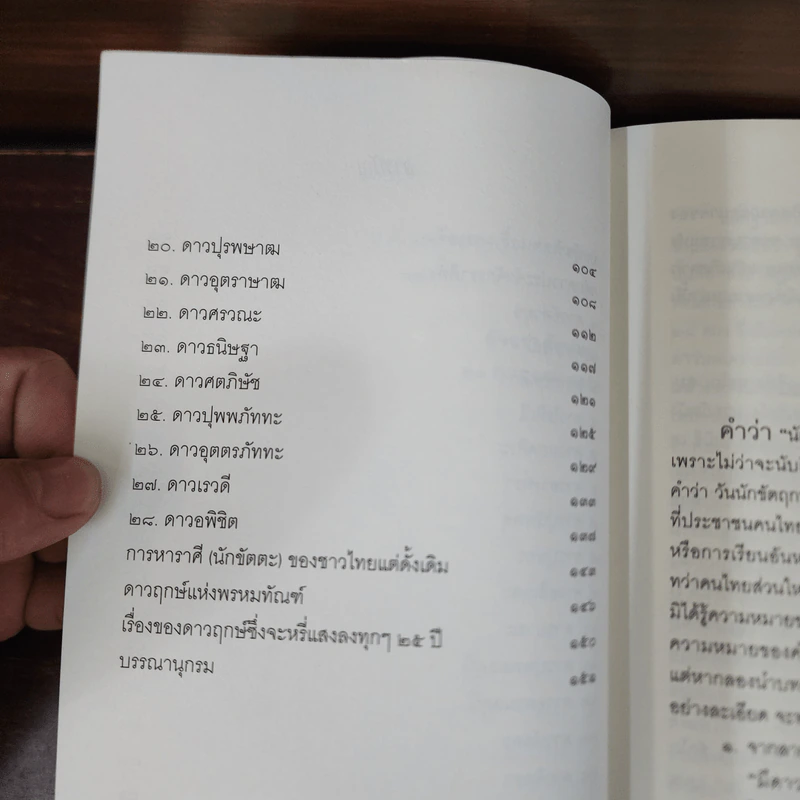 ๒๐. ดาวปุรพษาฒ ๑๐๔
๒๑. ดาวอุตราษาฒ ๑๐๘
๒๒. ดาวศรวณะ ๑๑๒
๒๓. ดาวธนิษฐา ๑๑๗
๒๔. ดาวศตภิษัช ๑๒๑
๒๕. ดาวปุพพภัททะ ๑๒๕
๒๖. ดาวอุตตรภัททะ ๑๒๙
๒๗. ดาวเรวดี ๑๓๓
๒๘. ดาวอพิชิต ๑๓๘
การหาราศี (นักขัตตะ) ของชาวไทยแต่ดั้งเดิม ๑๔๓
ดาวฤกษ์แห่งพรหมทัณฑ์ ๑๔๖
เรื่องของดาวฤกษ์ซึ่งจะหรี่แสงลงทุกๆ ๒๕ ปี ๑๕๐
บรรณานุกรม
คำว่า "นั
เพราะไม่ว่าจะนับ
คำว่า วันนักขัตฤก
ที่ประชาชนคนไทย
หรือการเรียนอันห
ทว่าคนไทยส่วนให
มิได้รู้ความหมายข
ความหมายของค
แต่หากลองนำบท
อย่างละเอียด จะพ
๑. จากลา
"มีดาว